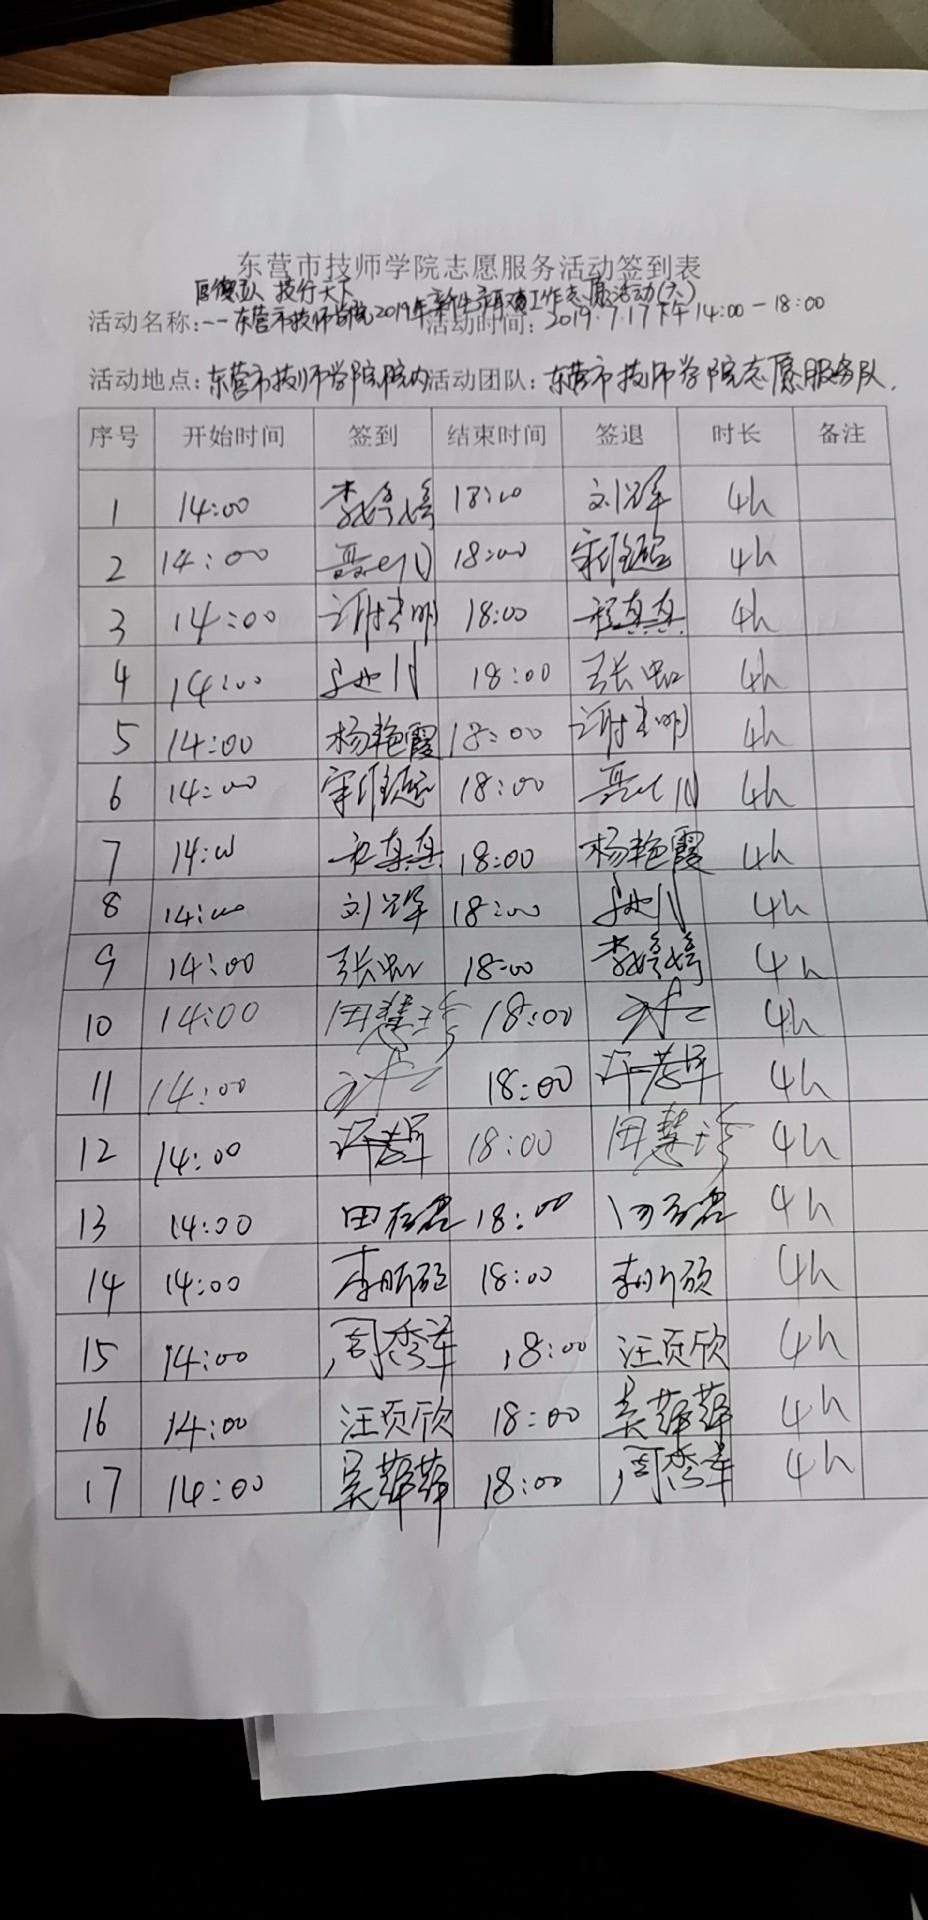 东营市技师学院志愿服务活动签到表
匠德立人 技行天下
活动名称:——东营市技师学院2019年新生 工作志愿活动(六) 活动时间: 2019.7.17下午14:00-18:00
活动地点:东营市技师学院院内 活动团队:东营市技师学院志愿服务队.
序号 开始时间 签到 结束时间 签退 时长 备注
1 14:00 李婷婷 18:00 4h
2 14:00 18:00 4h
3 14:00 谢书明 18:00 程真真 4h
4 14:00 18:00 张虹 4h
5 14:00 杨艳霞 18:00 谢书明 4h
6 14:00 18:00 4h
7 14:00 程真真 18:00 杨艳霞 4h
8 14:00 18:00 4h
9 14:00 张虹 18:00 李婷婷 4h
10 14:00 田慧珍 18:00 4h
11 14:00 18:00 4h
12 14:00 18:00 田慧珍 4h
13 14:00 18:00 4h
14 14:00 18:00 4h
15 14:00 周秀萍 18:00 汪页欣 4h
16 14:00 汪页欣 18:00 吴萍萍 4h
17 14:00 吴萍萍 18:00 周秀萍 4h